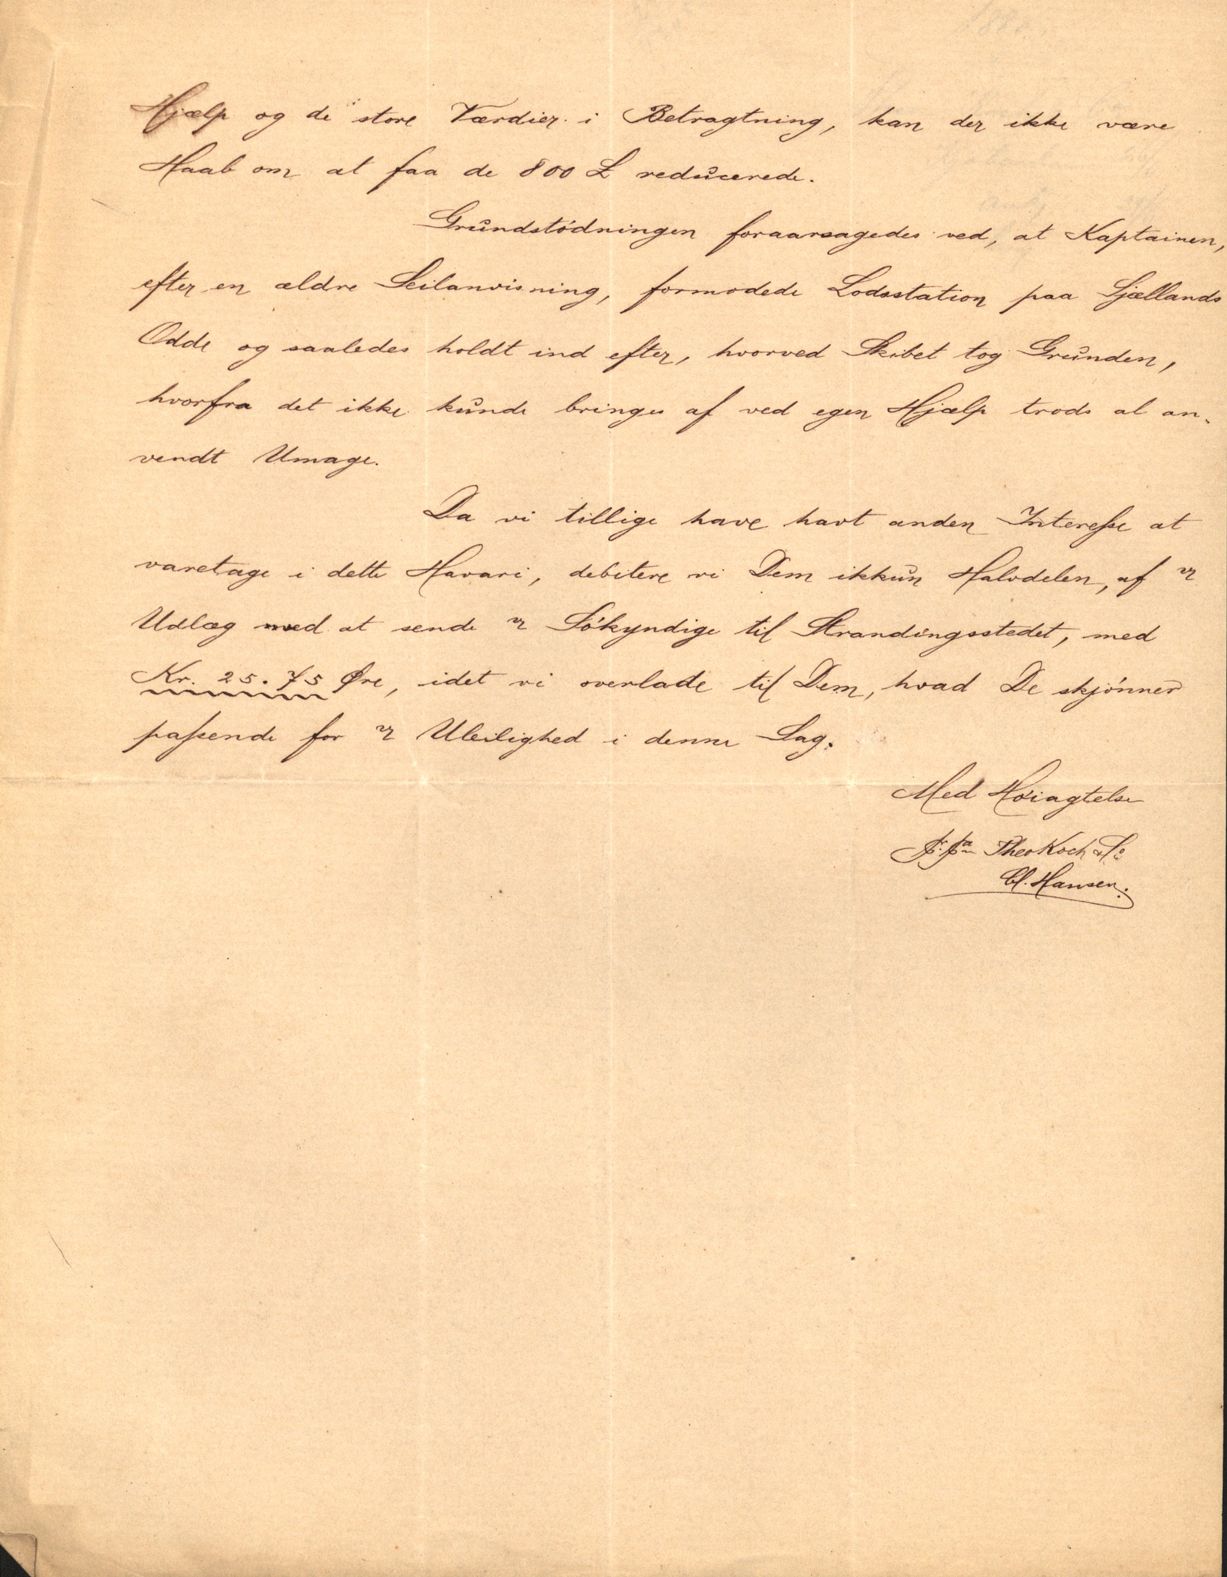 Hjælp og de store Værdier i Betragtning, kan der ikke være
Haab om at faa de 800 £ reducerede.
Grundstødningen foraarsagedes ved, at Kaptainen,
efter en ældre Seilanvisning, formodede Lodsstation paa Sjællands
Odde og saaledes holdt ind efter, hvorved Skibet tog Grunden,
hvorfra det ikke kunde bringes af ved egen Hjælp trods al an-
vendt Umage.
Da vi tillige have havt anden Interesse at
varetage i dette Havari, debitere vi Dem ikkun Halvdelen, af
Udlæg med at sende 2 Søkyndige til Strandingsstedet, med
Kr. 25.75 Øre, idet vi overlade til Dem, hvad De skjønner
passende for Uleilighed i denne Sag.
Med Høiagtelse
Theo Koch & Co
Cl. Hansen.